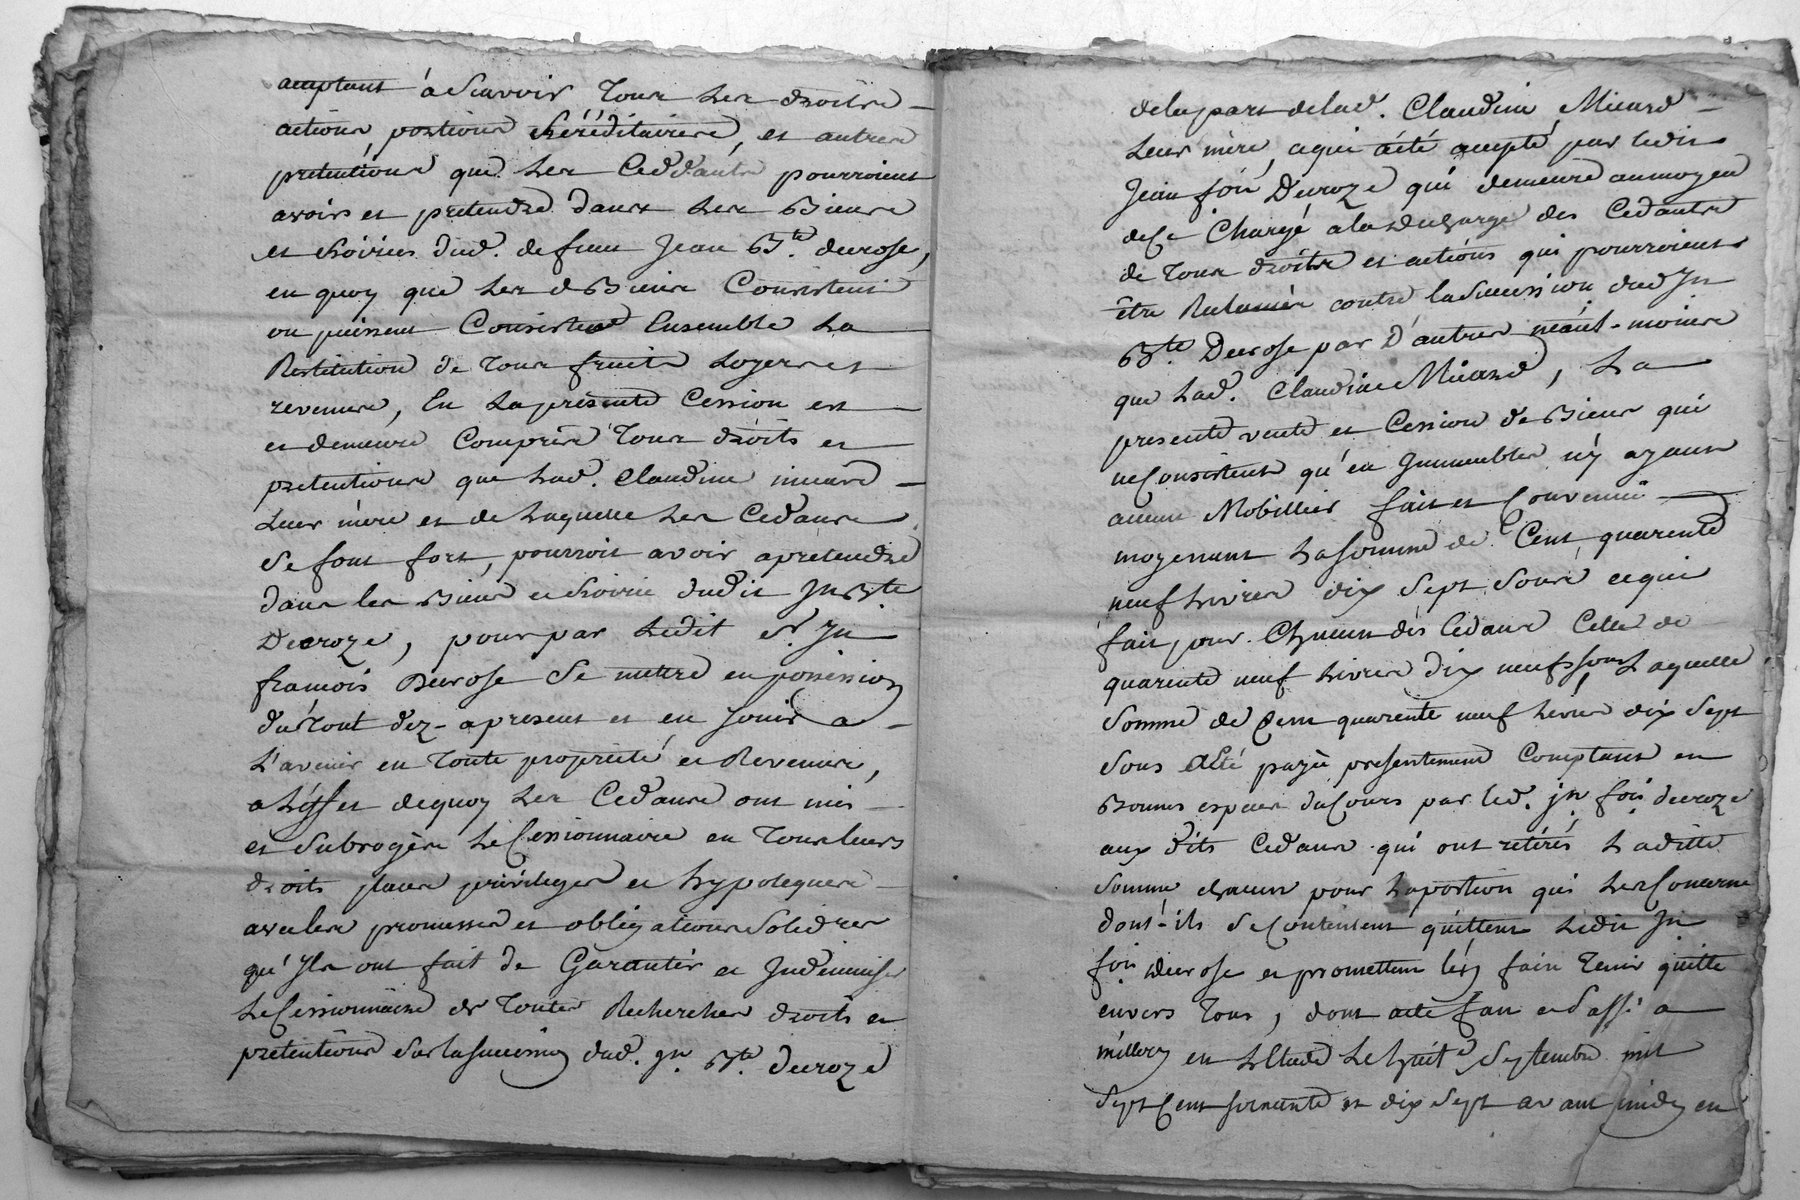 acceptant à Scavoir Tous Les droits
actions, portions héréditaires, et autres
prétentions que Les Ceddants pourroient
avoir et pretendre dans Les Biens
et hoiries dud. defunt Jean Bte. decrose,
en quoy que Les d Biens Consistent
ou puissent Consister Ensemble La
Restitution de Tous fruits Loyers et
revenus, En La présente Cession est
et demeure Compris Tous droits et
pretentions que Lad. Claudine micard
Leur mère et de Laquelle Les Cedans
Se font fort, pourroit avoir a prétendre
dans les Biens et hoirie dudit Jn Bte
Decroze, pour par Ledit Sr. Jn
francois Decrose Se mettre en possession
du Tout dez-apresent et en Jouir a
L'avenir en Toute propriété et Revenus,
a L'effet dequoy Les Cedans ont mis
et Subrogés Le Cessionnaire en Tous leurs
droits places privileges et hypoteques
avec les promesses et obligations Solidres
qu'Ils ont fait de Garantir et Indemniser
Le Cessionnaire de Toutes Recherches droits et
prétentions Sur la succession dud. Jn. Bte. decroze
de la part de lad. Claudine Micard
Leur mère, a qui a été accepté par ledit
Jean fois Decroze qui demeure au moyen
de Ce Chargé a la décharge des Cedants
de Tous droits et actions qui pourroient
être Reclamés contre la Succession dud Jn
Bte. Decrose par D'autres néant-moins
que Lad. Claudine Micard, La
presente vente et Cession de Biens qui
ne Consistent qu'en Immeubles n'y ayant
aucun Mobillier fait et Convenue
moyenant La somme de Cent quarente
neuf Livres dix Sept Sous ce qui
fait, pour Chacun des Cedans Celle de
quarente neuf Livres dix neuf sous Laquelle
Somme de Cent quarente neuf Livres dix Sept
Sous a été payée presentement Comptant en
Bonnes especes du Cours par led. jn. fois decroze
aux dits Cedans qui ont retirés Laditte
Somme chacun pour La portion qui Les Concerne
dont-ils Se Contentent quittent Ledit Jn
fois Decrose et promettent l'en faire Tenir quitte
envers Tous, dont acte fait et Passé a
millery en L'Etude Le huit Septembre mil
Sept Cent soixante et dix Sept avant midy en